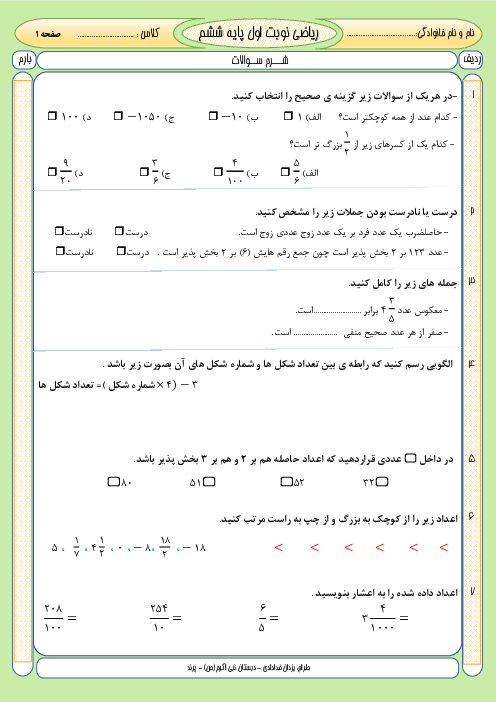 نام و نام خانوادگی:............................ ریاضی نوبت اول پایه ششم کلاس : ........................ صفحه ۱
ردیف شـــرح ســـوالات بارم
۱ -در هریک از سوالات زیر گزینه ی صحیح را انتخاب کنید.
- کدام عدد از همه کوچکتر است؟ الف) ۱ ب) ۱۰- ج) ۱۰۵۰- د) ۱۰۰
- کدام یک از کسرهای زیر از ۱/۲ بزرگ تر است؟
الف) ۵/۶ ب) ۴/۱۰۰ ج) ۳/۶ د) ۹/۲۰
۲ درست یا نادرست بودن جملات زیر را مشخص کنید.
-حاصلضرب یک عدد فرد بر یک عدد زوج عددی زوج است. درست نادرست
-عدد ۱۲۳ بر ۲ بخش پذیر است چون جمع رقم هایش (۶) بر ۲ بخش پذیر است . درست نادرست
۳ جمله های زیر را کامل کنید.
-معکوس عدد ۴ ۳/۵ برابر ......................است.
- صفر از هر عدد صحیح منفی .................... است.
۴ الگویی رسم کنید که رابطه ی بین تعداد شکل ها و شماره شکل های آن بصورت زیر باشد .
۳ - (۴ × شماره شکل )= تعداد شکل ها
۵ در داخل عددی قراردهید که اعداد حاصله هم بر ۲ و هم بر ۳ بخش پذیر باشد.
۳۲ ۵۲ ۵۱ ۸۰
۶ اعداد زیر را از کوچک به بزرگ و از چپ به راست مرتب کنید.
< < < < < < ۵ ، ۱/۷ ، ۴ ۱/۲ ، ۰ ، -۸ ، ۱۸/۲ ، -۱۸
۷ اعداد داده شده را به اعشار بنویسید .
۲۰۸/۱۰۰ = ۲۵۴/۱۰ = ۶/۵ = ۳ ۴/۱۰۰۰ =